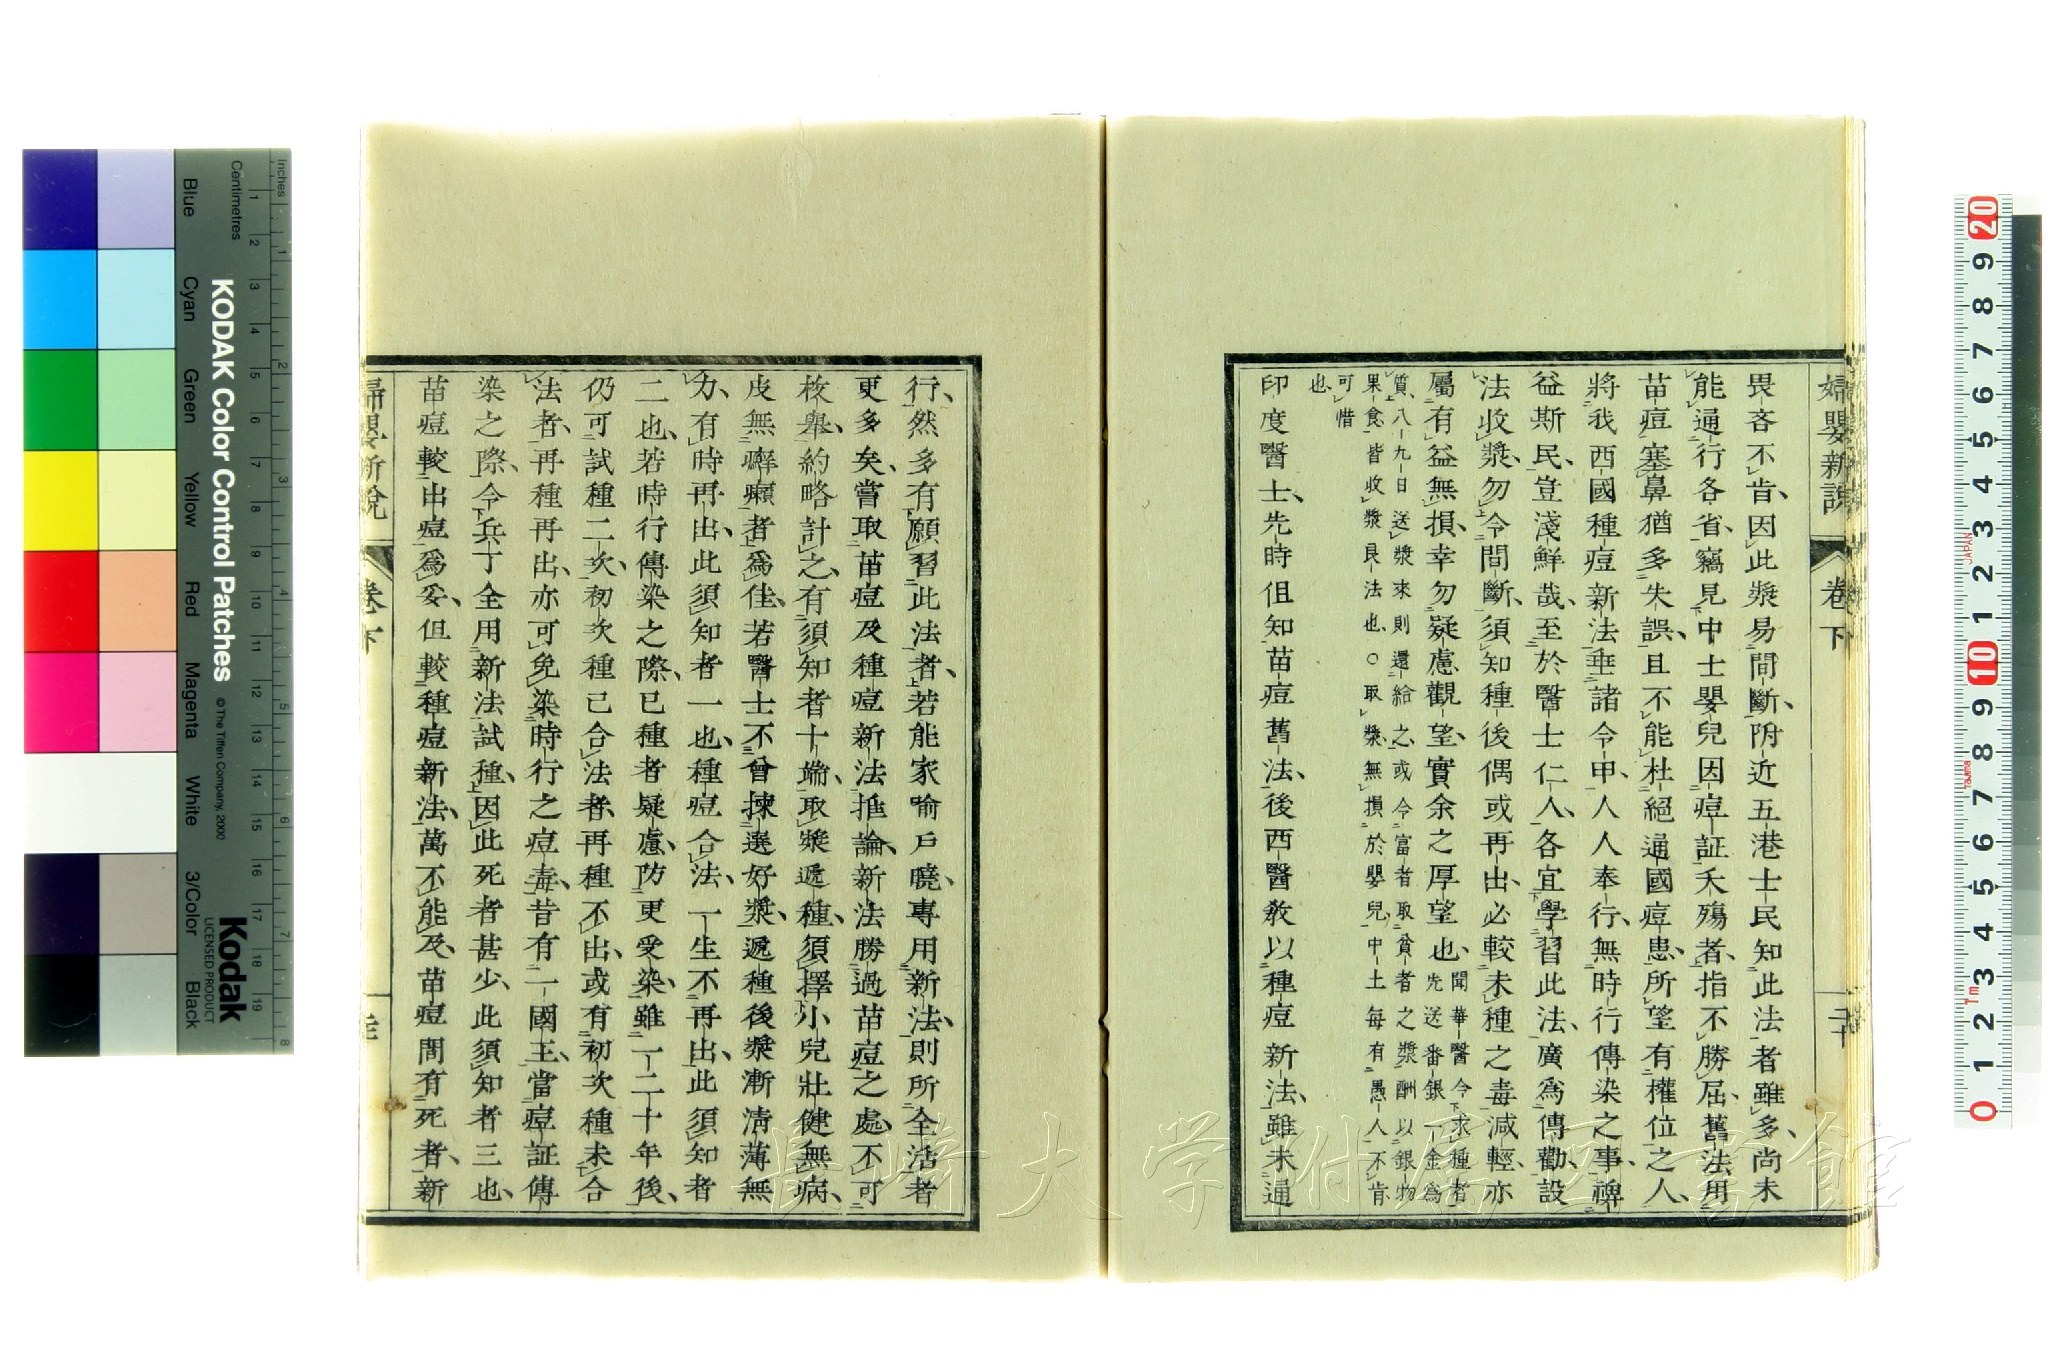 婦嬰新說 卷下 二十
畏吝不肯因此漿易間斷附近五港士民知此法者雖多尚未
能通行各省竊見中土嬰兒因痘証夭殤者指不勝屈舊法用
苗痘塞鼻猶多失誤且不能杜絕通國痘患所望有權位之人
將我西國種痘新法垂諸令甲人人奉行無時行傳染之事裨
益斯民豈淺鮮哉至於醫士仁人各宜學習此法廣爲傳勸設
法收漿勿令間斷須知種後偶或再出必較未種之毒減輕亦
屬有益無損幸勿疑慮觀望實余之厚望也聞華醫令求種者
先送番銀一金爲
質八九日送漿來則還給之或令富者取貧者之漿酬以銀物
果食皆收漿良法也○取漿無損於嬰兒中土每有愚人不肯
可惜
也
印度醫士先時但知苗痘舊法後西醫教以種痘新法雖未通
行然多有願習此法者若能家喻戶曉專用新法則所全活者
更多矣嘗取苗痘及種痘新法推論新法勝過苗痘之處不可
枚舉約略計之有須知者十端取漿遞種須擇小兒壯健無病
皮無癬癩者爲佳若醫士不曾揀選好漿遞種後漿漸清薄無
力有時再出此須知者一也種痘合法一生不再出此須知者
二也若時行傳染之際已種者疑慮防更受染雖一二十年後
仍可試種二次初次種已合法者再種不出或有初次種未合
法者再種再出亦可免染時行之痘毒昔有一國王當痘証傳
染之際令兵丁全用新法試種因此死者甚少此須知者三也
苗痘較出痘爲妥但較種痘新法萬不能及苗痘間有死者新
婦嬰新說 卷下
KODAK Color Control Patches
© The Tiffen Company, 2000
Kodak
LICENSED PRODUCT
Centimetres
Inches
Blue Cyan Green Yellow Red Magenta White 3/Color Black
1 2 3 4 5 6 7 8 9 10 11 12 13 14 15 16 17 18 19
1 2 3 4 5 6 7 8
20 9 8 7 6 5 4 3 2 1 10 9 8 7 6 5 4 3 2 1 0
JAPAN
Tajima
1m
長崎大学附属図書館